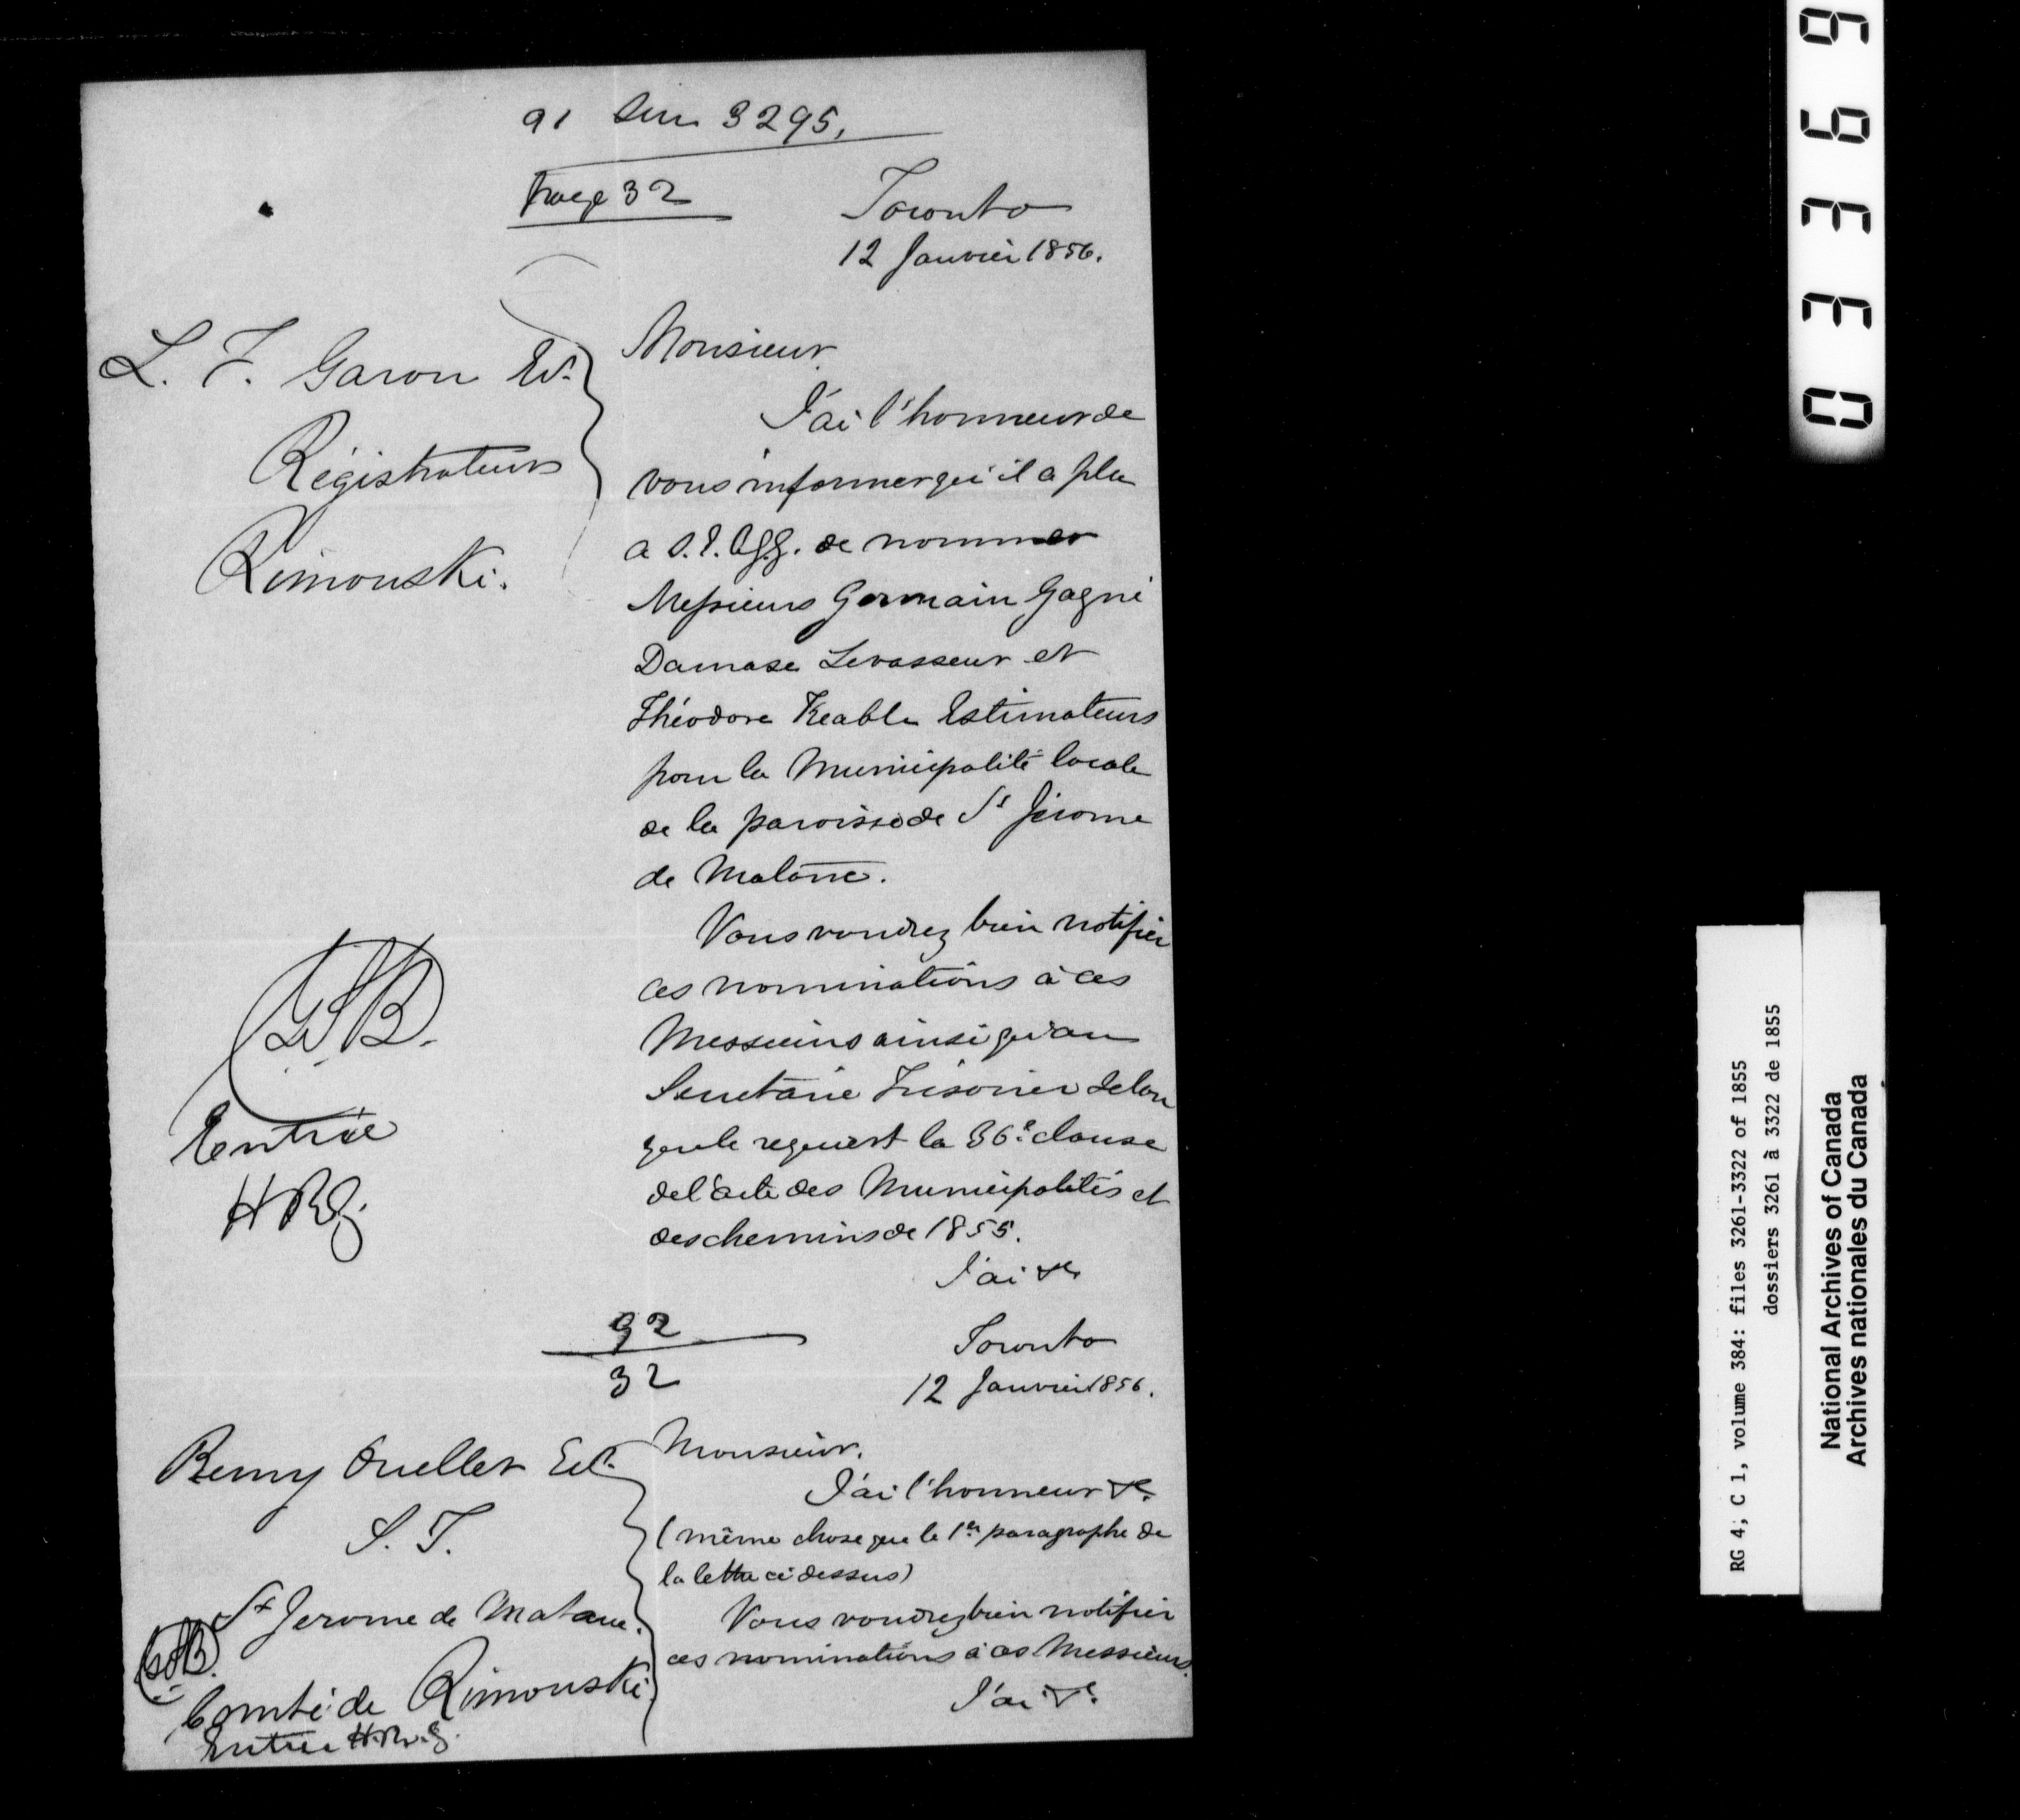 91 sur 3295.
Page 32
Toronto
12 Janvier 1856.
L. F. Garon Ecr.
Régistrateur
Rimouski.
Monsieur
J'ai l'honneur de
vous informer qu'il a plu
a S. E. de nommer
Messieurs Germain Gagné
Damase Levasseur et
Théodore Keable Estimateurs
pour la Municipalité locale
de la paroisse de St Jérome
de Matane.
Vous voudrez bien notifier
ces nominations à ces
Messieurs ainsi qu'au
Secretaire Trésorier selon
que le requiert la 36e. clause
de l'acte des Municipalités et
des chemins de 1855.
J'ai &c
Entrée
92
32
Toronto
12 Janvier 1856.
Remy Ouellet Ecr.
S. T.
St Jerome de Matane.
Comté de Rimouski
Entrée
Monsieur.
J'ai l'honneur &c.
(même chose que le 1er paragraphe de
la lettre ci dessus)
Vous voudrez bien notifier
ces nominations à ces Messieurs.
J'ai &c.
03369
RG 4; C 1, volume 384: files 3261-3322 of 1855
dossiers 3261 à 3322 de 1855
National Archives of Canada
Archives nationales du Canada